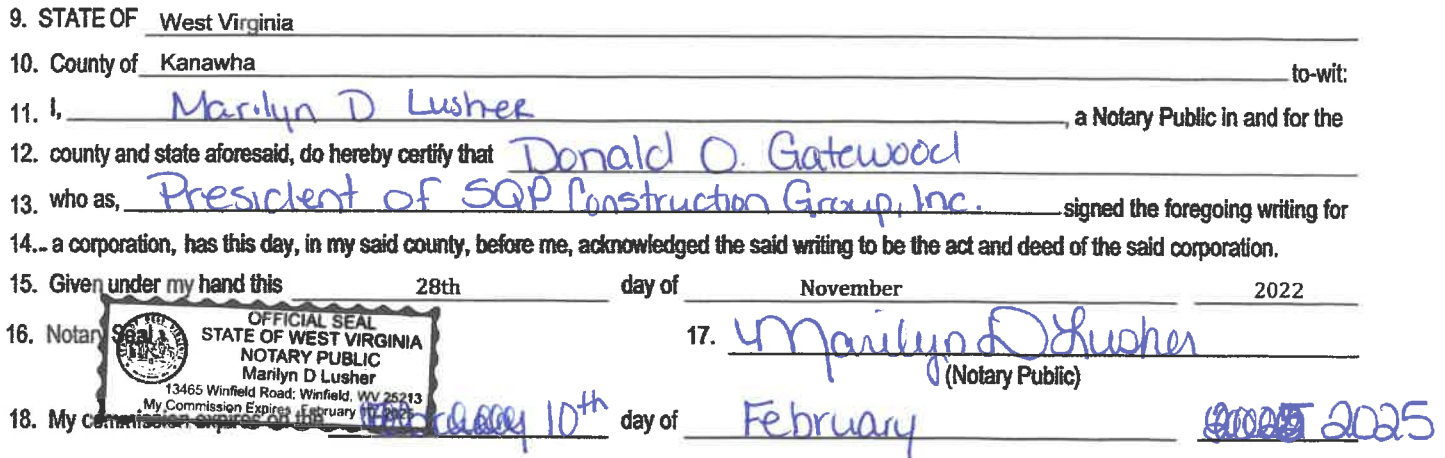 9. STATE OF West Virginia
10. County of Kanawha to-wit:
11. I, Marilyn D Lusher, a Notary Public in and for the
12. county and state aforesaid, do hereby certify that Donald O. Gatewood
13. who as, President of SQP Construction Group, Inc. signed the foregoing writing for
14. a corporation, has this day, in my said county, before me, acknowledged the said writing to be the act and deed of the said corporation.
15. Given under my hand this 28th day of November 2022
16. Notary Seal
OFFICIAL SEAL
STATE OF WEST VIRGINIA
NOTARY PUBLIC
Marilyn D Lusher
13465 Winfield Road; Winfield, WV 25213
My Commission Expires February
17. Marilyn D Lusher
(Notary Public)
18. My commission expires on the 10th day of February 2025